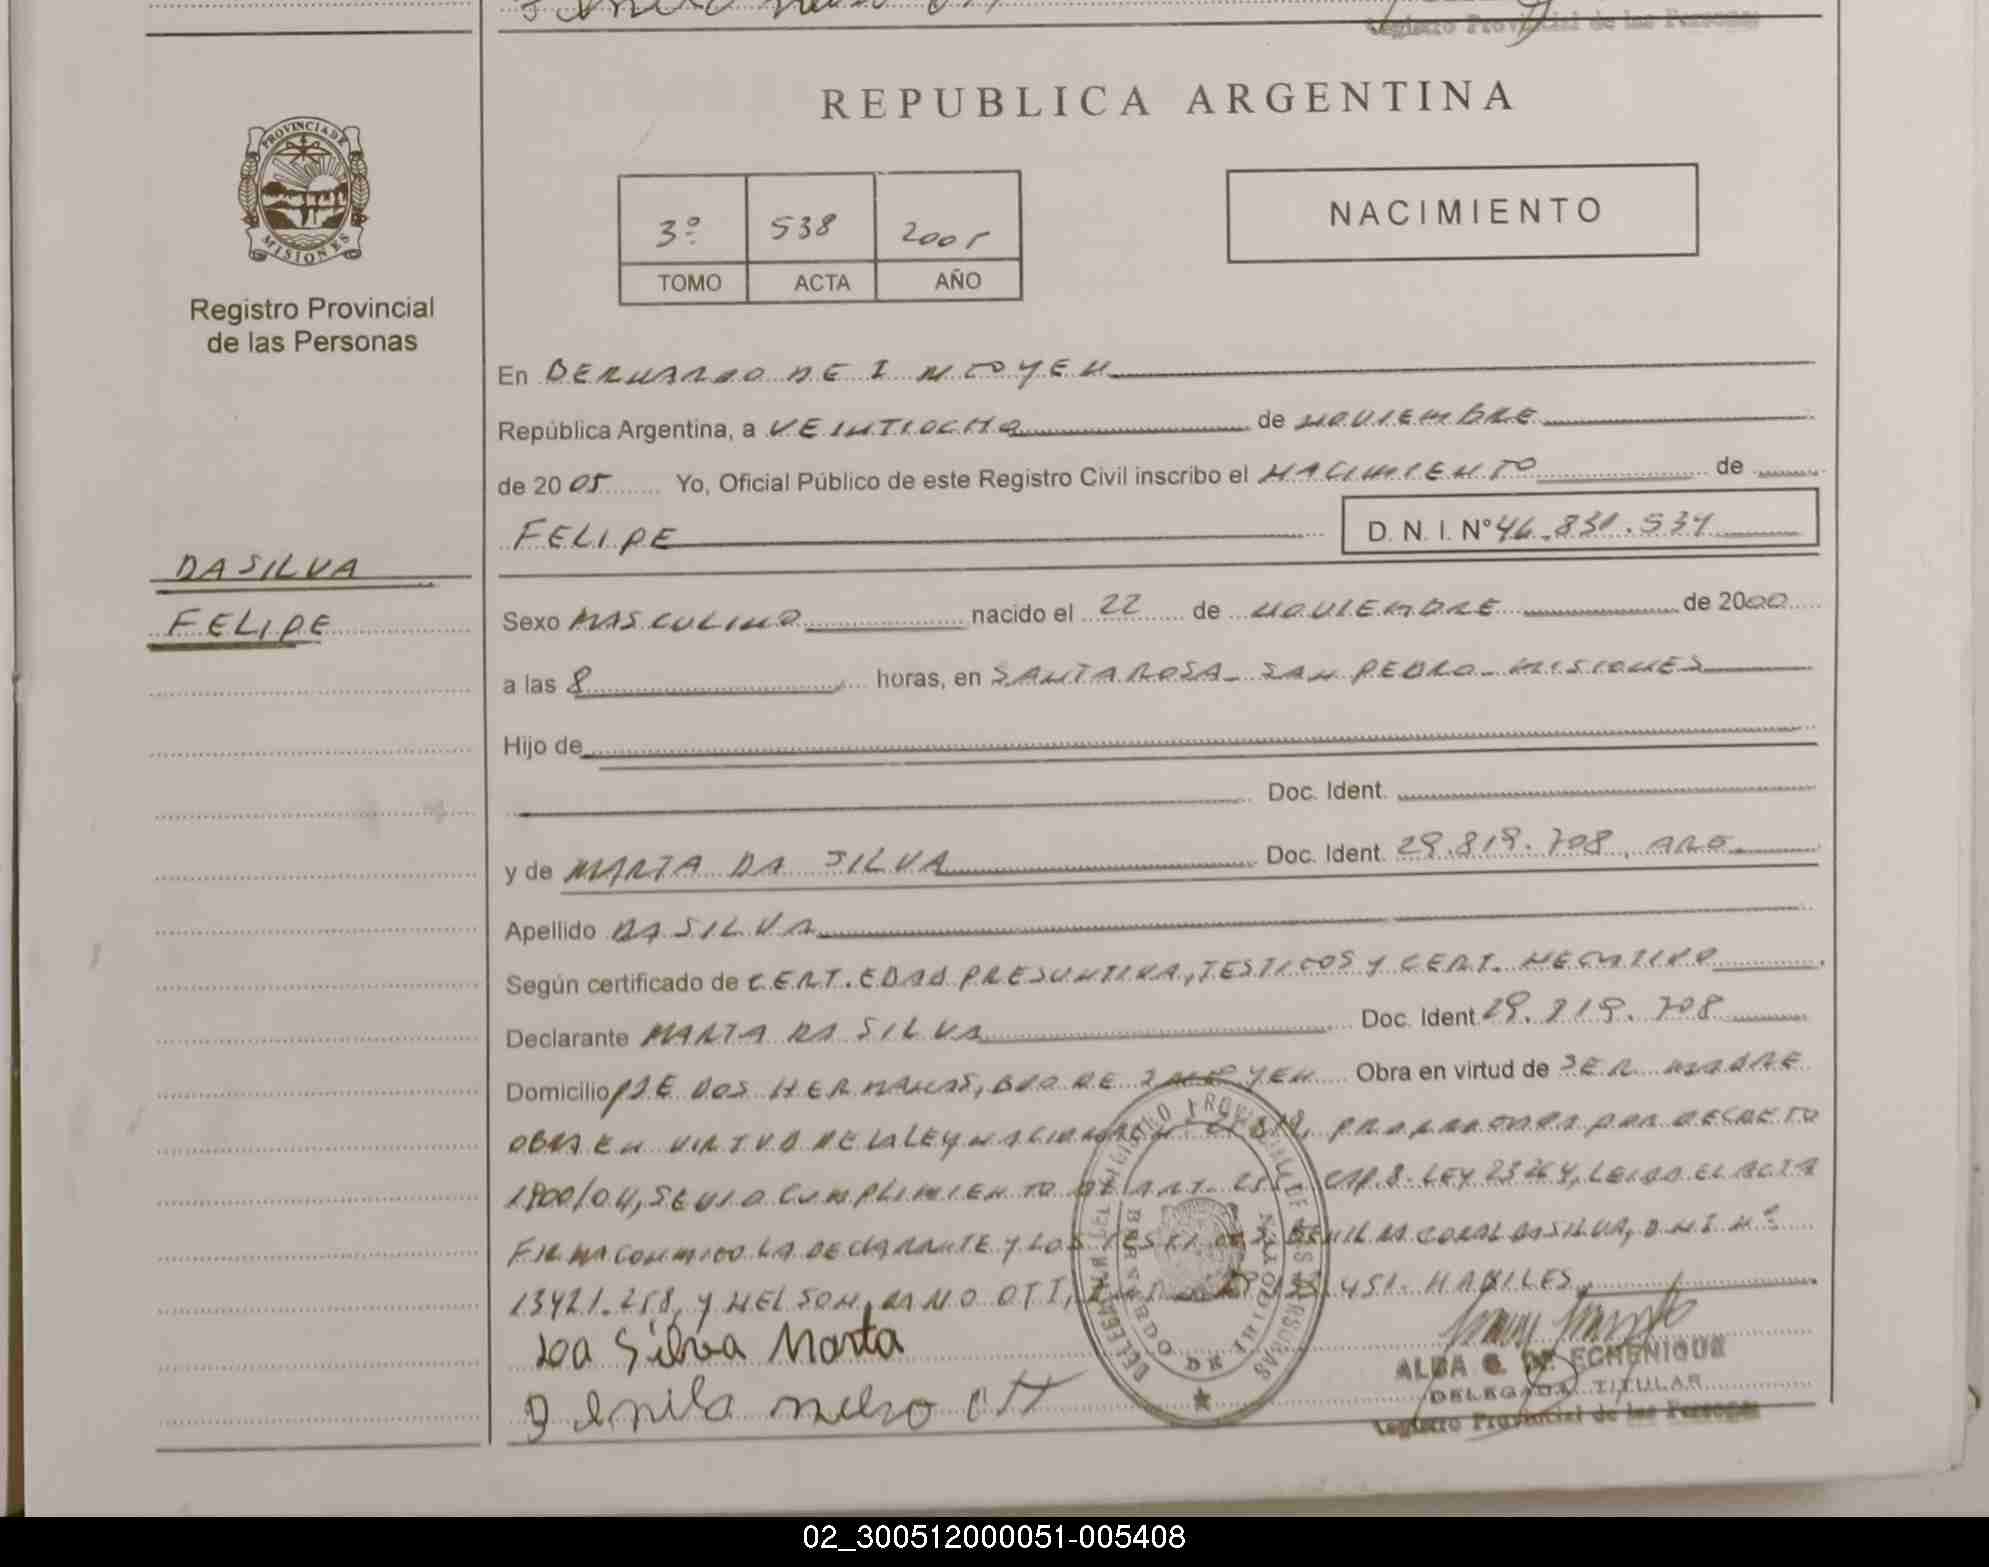 Registro Provincial de las Personas
REPUBLICA ARGENTINA
PROVINCIA DE
MISIONES
Registro Provincial
de las Personas
3º 538 2005
TOMO ACTA AÑO
NACIMIENTO
En BERNARDO DE IRIGOYEN
República Argentina, a VEINTIOCHO de NOVIEMBRE
de 2005 Yo, Oficial Público de este Registro Civil inscribo el NACIMIENTO de
FELIPE D. N. I. Nº 46.831.534
DA SILVA
FELIPE
Sexo MASCULINO nacido el 22 de NOVIEMBRE de 2000
a las 8 horas, en SANTA ROSA - SAN PEDRO - MISIONES
Hijo de
Doc. Ident.
y de MARTA DA SILVA Doc. Ident. 29.819.708, ARG.
Apellido DA SILVA
Según certificado de CERT. EDAD PRESUNTIVA, TESTIGOS Y CERT. NEGATIVO
Declarante MARTA DA SILVA Doc. Ident. 29.819.708
Domicilio PJE DOS HERMANAS, BDO DE IRIGOYEN Obra en virtud de SER MADRE
OBRA EN VIRTUD DE LA LEY NACIONAL POR DECRETO
1900/04, SE DIO CUMPLIMIENTO AL ART. CAP. 8. LEY 23264, LEIDO EL ACTA
FIRMA CONMIGO LA DECLARANTE Y LOS TESTIGOS CORAL DA SILVA, D N I Nº
13421.258, Y NELSON OTT, 451. HABILES
Da Silva Marta
ALBA G. DE ECHENIQUE
DELEGADA TITULAR
Registro Provincial de las Personas
02_300512000051-005408